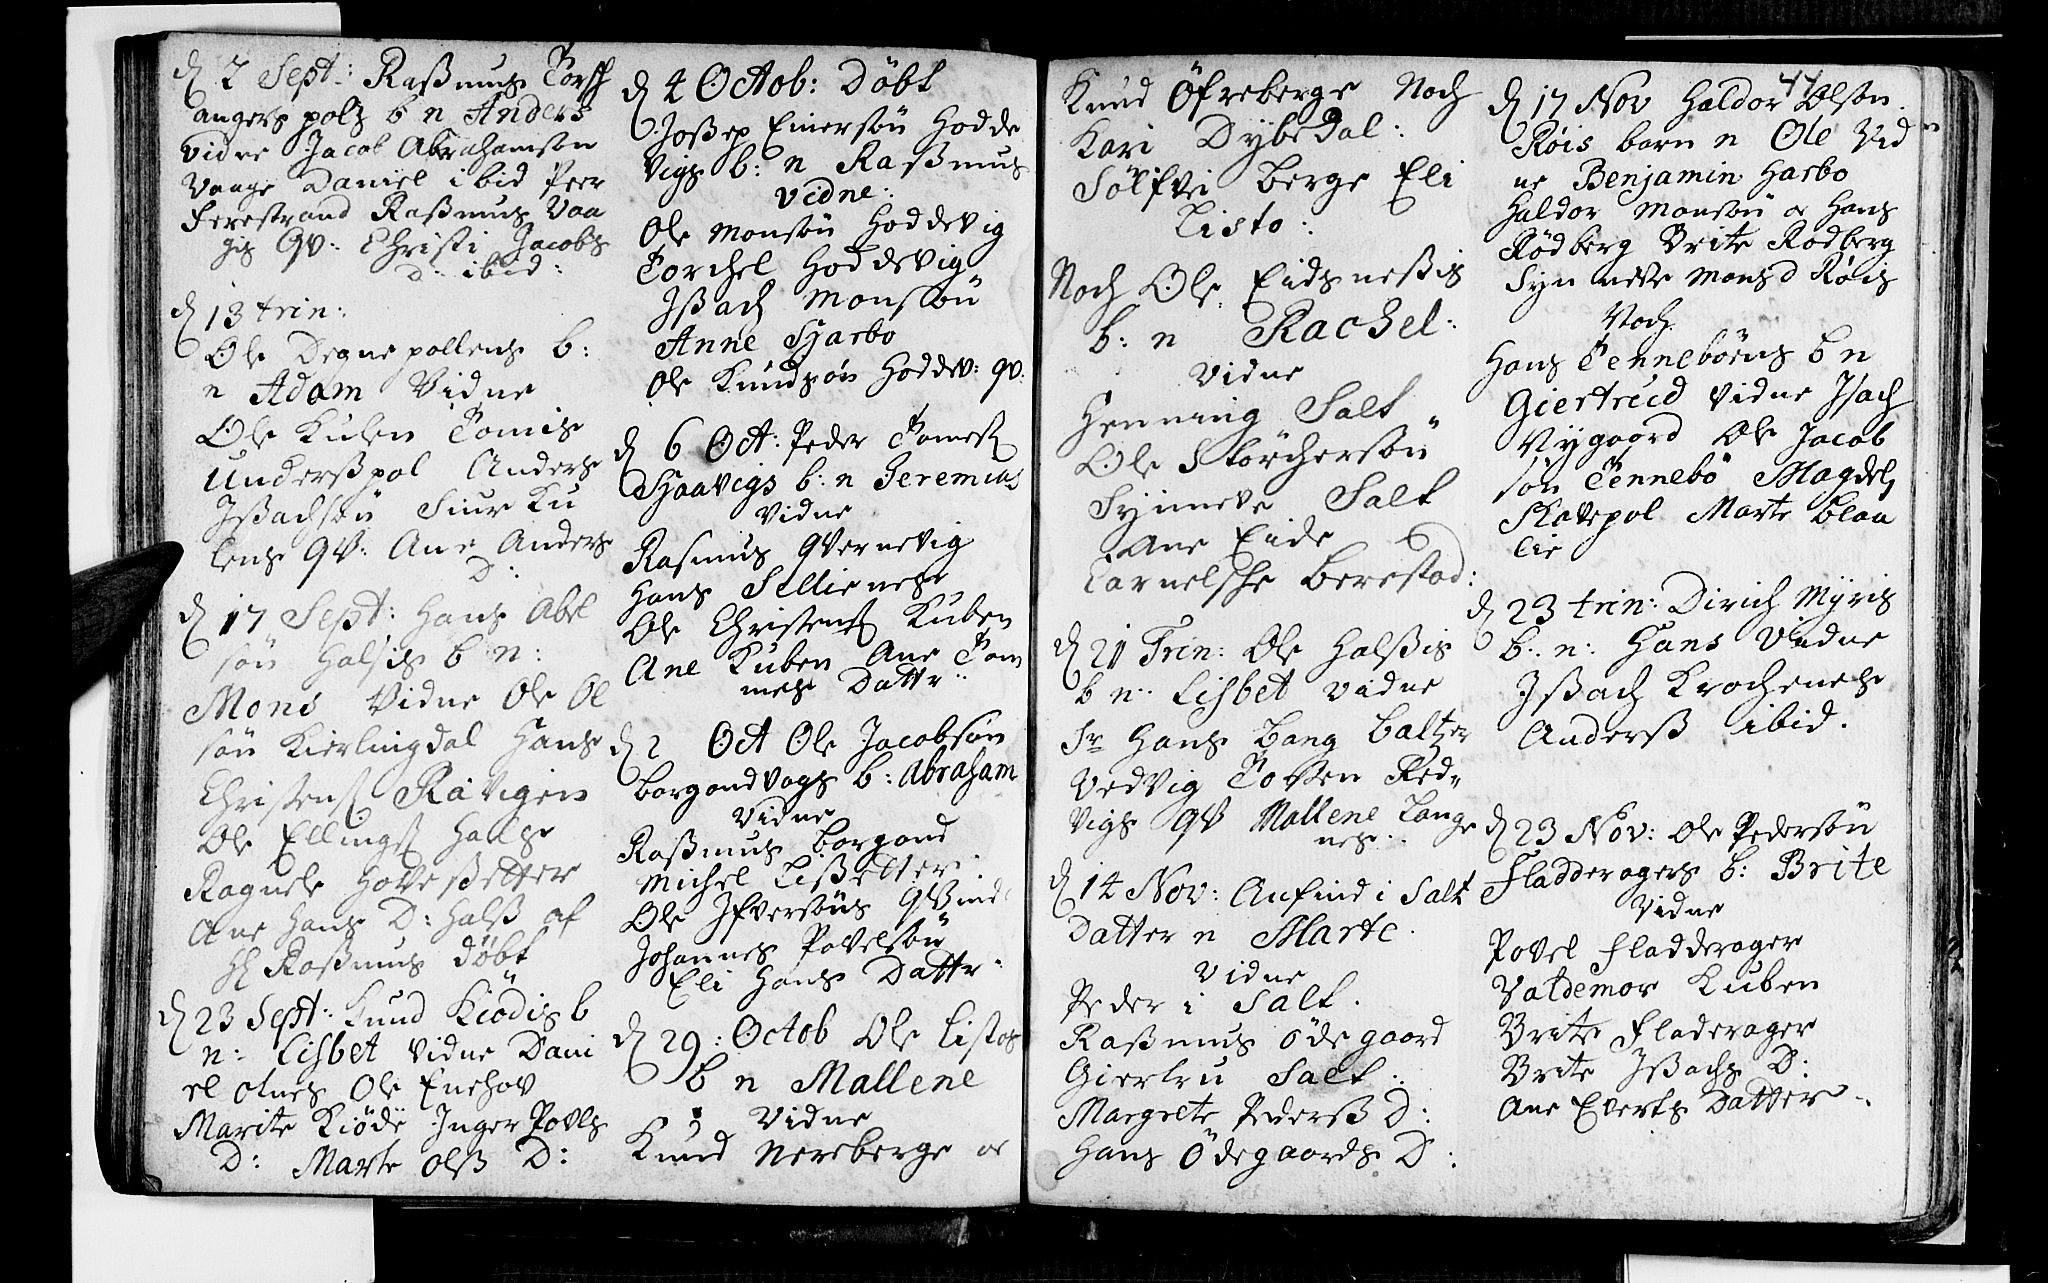 d 2 Sept: Raßmus Torff
angers polß b n Anders
vidne Jacob Abrahamsøn
Vaage Daniel ibid Peer
Ferestrand Raßmus Vaa
gis qv: Christi Jacobs
D: ibid:
d 13 trin:
Ole Degnepollens b:
n Adam Vidne
Ole Kuben Tomis
Underßpol Anders
Jßachsøn Siur Ku
bens qv: Ane Anders
D:
d 17 Sept: Hans Abel
søn Halsis b n:
Mons Vidne Ole Ol
søn Kierlingdal Hans
Christens Råvigen
Ole Ellings Halse
Ragnele Hoveßetter
Ane Hans D: Halß af
H Raßmus döbt
d 23 Sept: Knud Kiödis b
n: Lisbet Vidne Dani
el Olnes Ole Enehov
Marite Kiöde Inger Povls
D: Marte Olß D:
d 4 Octob: Döbt
Joßep Einersøn Hodde
vigs b: n Raßmus
Vidne:
Ole Monsøn Hoddevig
Torchel Hoddevig
Jßach Monssøn
Anne Hjarbo
Ole Knudsøn Hoddev: qv:
d 6 Oct: Peder Tomes
Hjaavigs b: n Jeremias
Vidne
Rasmus Qvernevig
Hans Sellienese
Ole Christens Kuben
Ane Kuben Ane Tom
mes Dattr:
d 2 Oct Ole Jacobsøn
Borgondvogs b: Abraham
Vidne
Raßmus Borgond
Michel Lißetter
Ole Ifversøns qvind
Johannes Povelsøn
Eli Hans Dattr:
d 29: Octob Ole Listos
b n Mallene
Vidne
Knud Nereberge oc
Knud Öfreberge Noch
Kari Dybedal:
Sölfvi Berge Eli
Listo:
Noch Ole Eidsneßis
b: n Rachel:
Vidne
Henning Salt
Ole Störchersøn
Synneve Salt
Ane Eide
Carnelsche Berestad:
d 21 Trin: Ole Halßis
b n: Lisbet Vidne
Sr Hans Bang Baltzer
Vedvig Tosten Red
vigs qv Mallene Lange
nes:
d 14 Nov: Anfind i Salt
Datter n Marte.
Vidne
Peder i Salt.
Raßmus Ödegaard
Giertru Salt:
Margrete Pederß D:
Hans Ödegaards D:
44
d 17 Nov Haldor Olsøn
Røis barn n Ole Vid
ne Benjamin Harbo
Haldor Monsøn oc Hans
Rödberg Brite Rødberg
Synneve Mons d Røis
Noch
Hans Tennebörns b n
Giertrud Vidne Isach
Nygaard Ole Jacob
søn Tennebö Magdel
Skavepol Marte Blaa
lie
d 23 trin: Dirich Myris
b: n: Hans Vidne
Jßach Krochenese
Anderß ibid.
d 23 Nov: Ole Pedersøn
Fladderagers b: Brite
Vidne
Povel Fladderager
Valdemor Kuben
Brite Fladerager
Brite Jßachs D:
Ane Everts Datter